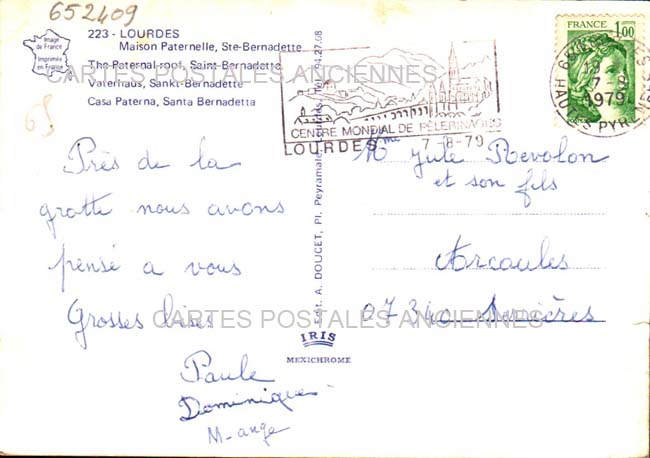 652409
Image
de France
Imprimée
en France
223 - LOURDES
Maison Paternelle, Ste-Bernadette
The Paternal roof, Saint-Bernadette
Vaterhaus, Sankt-Bernadette
Casa Paterna, Santa Bernadetta
CARTES POSTALES ANCIENNES
65
Près de la
grotte nous avons
pensé a vous
Grosses bises
Paule
Dominique
M-ange
Edit. A. DOUCET, Pl. Peyramale
94.27.08
IRIS
MEXICHROME
CENTRE MONDIAL DE PÈLERINAGES
LOURDES
7-8-79
FRANCE 1,00
1979
HAUTES PYRENEES
Mme Jule Revolon
et son fils
Arcoules
07340
CARTES POSTALES ANCIENNES